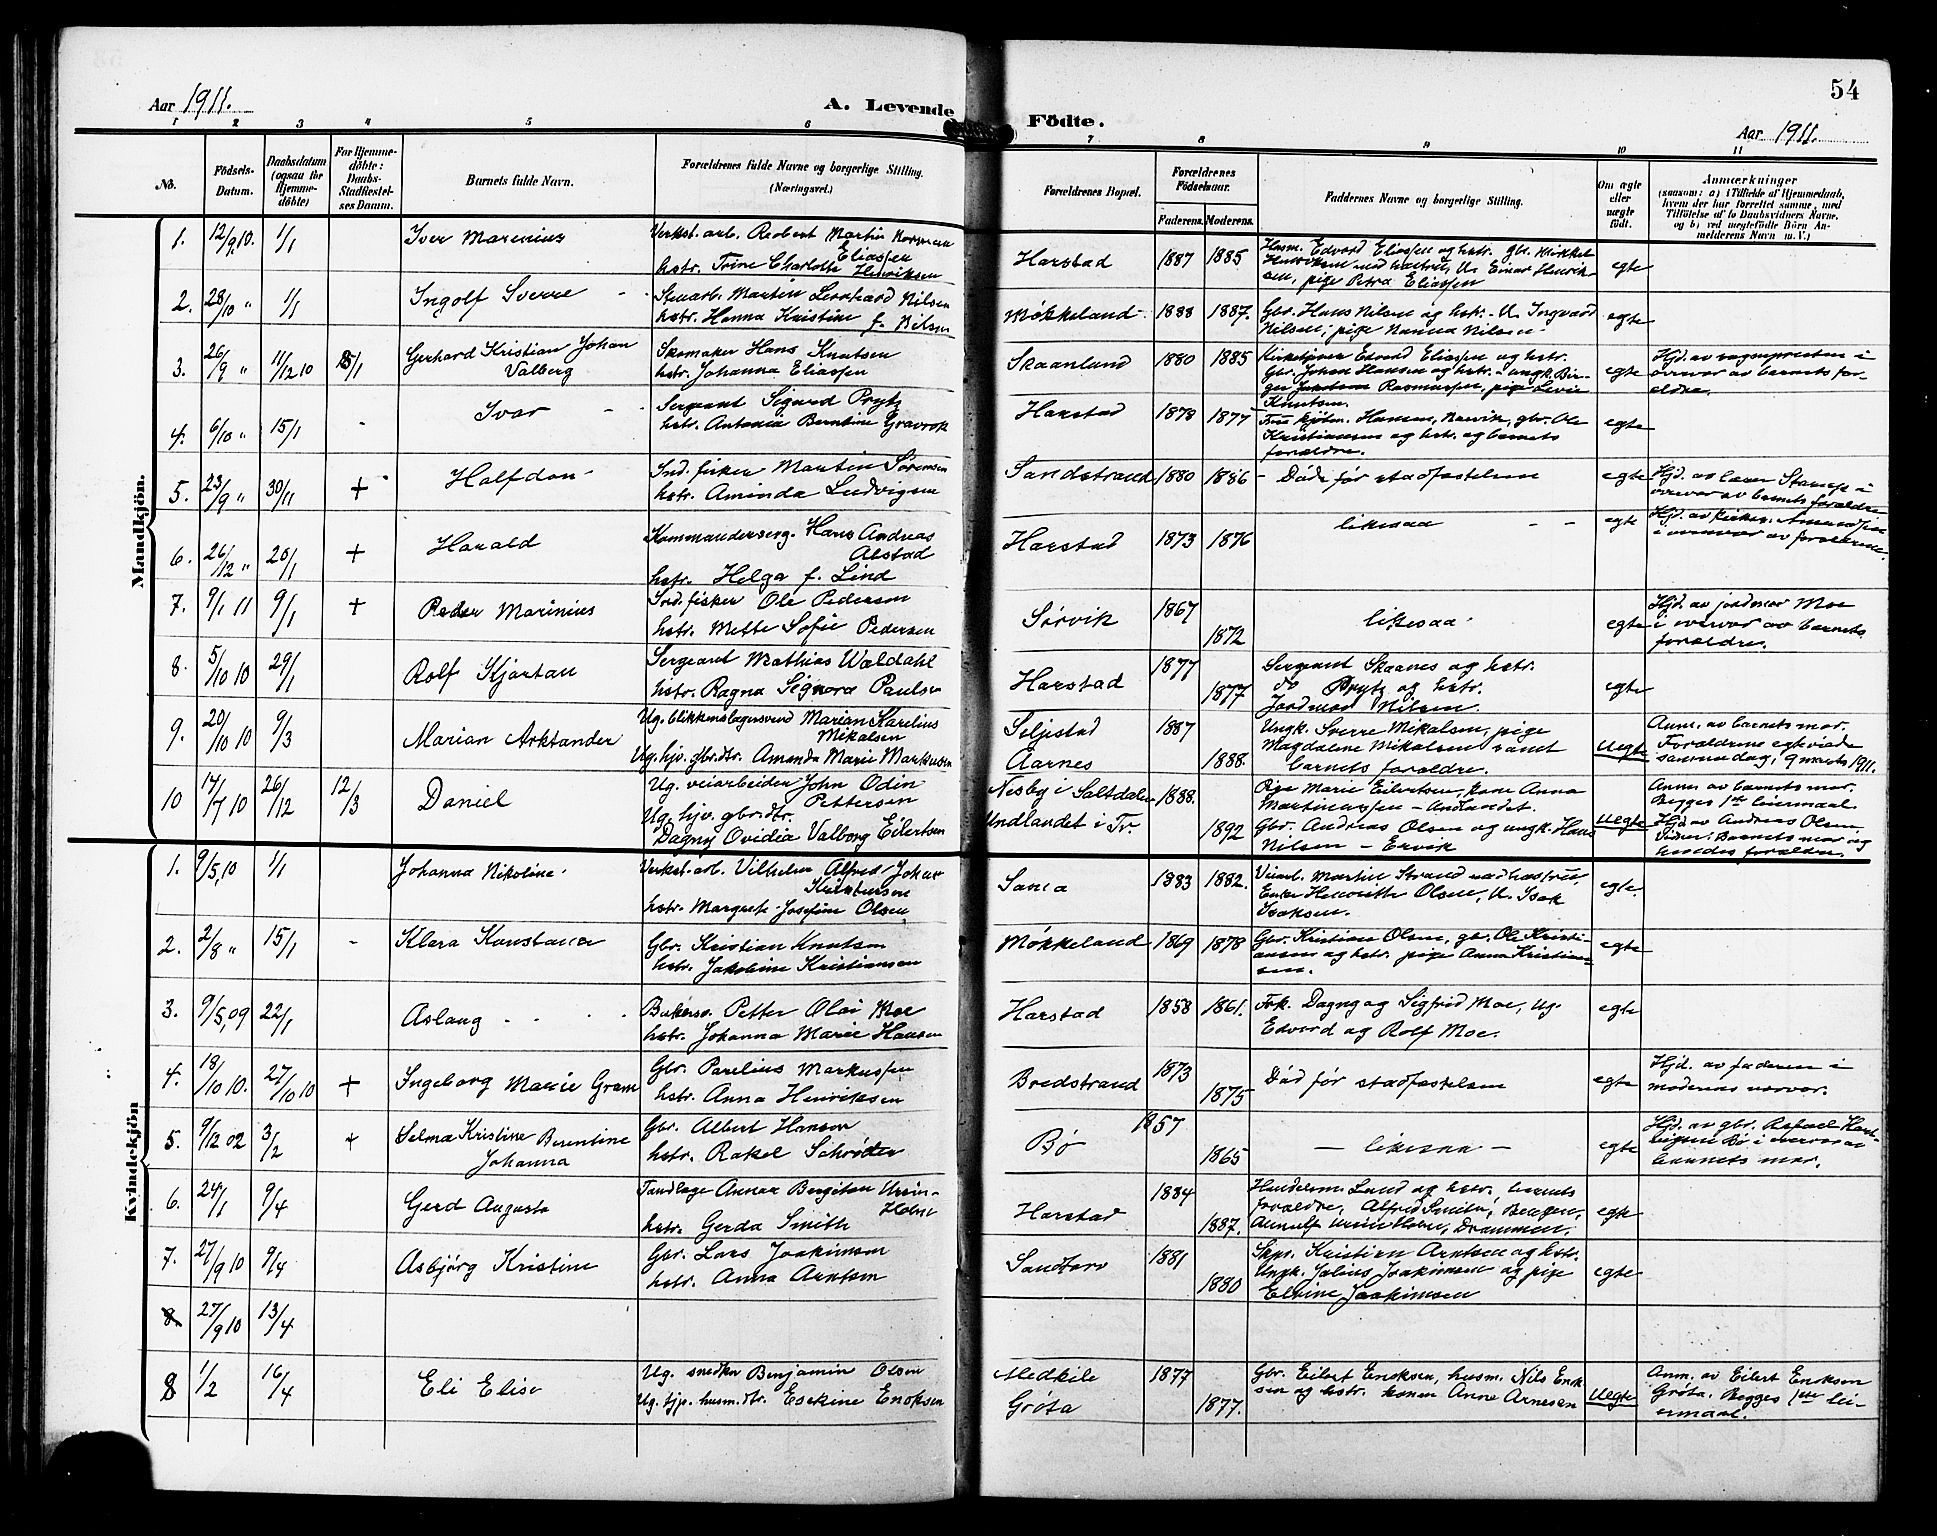 54
Aar 1911.
A. Levende
Födte.
Aar 1911.
1 2 3 4 5 6 7 8 9 10 11
No.
Födsels-
Datum.
Daabsdatum
(ogsaa for
Hjemme-
döbte)
For Hjemme-
döbte:
Daabs-
Stadfæstel-
ses Datum.
Barnets fulde Navn.
Forældrenes fulde Navne og borgerlige Stilling.
(Næringsvei.)
Forældrenes Bopæl.
Forældrenes
Födselsaar.
Faderens. Moderens.
Faddernes Navne og borgerlige Stilling.
Om ægte
eller
uægte
födt.
Anmærkninger
(saasom: a) i Tilfælde af Hjemmedaab,
hvem der har forrettet samme, med
Tilföielse af to Daabsvidners Navne.
og b) ved uægtefödte Börn An-
melderens Navn m. V.)
Mandkjön.
1. 12/9,10. 1/1 Iver Marenius
Verkst. arb. Robert Martin Normann
Eliassen
hstr. Trine Charlotte Henriksen
Harstad 1887 1885
Husm. Edvard Eliassen og hstr. gbr.
Henriksen med hustru, U. Einar Henrik-
sen, pige Petra Eliassen
egte
2. 28/10 " 1/1 Ingolf Sverre
Stenarb. Martin Leonhard Nilsen
hstr. Hanna Kristine f. Nilsen
Møkkeland 1888 1887.
Gbr. Hans Nilsen og hstr. - U. Ingvard
Nilsen, pige Nanna Nilsen
egte
3. 26/9 " 11/12 10 15/1 Gerhard Kristian Johan
Valberg
Skomaker Hans Knutsen
hstr. Johanna Eliassen
Skaanland 1880 1885
Kirketjener Edvard Eliassen og hstr.
Gbr. Johan Hansen og hstr. - ungk. Bir-
ger Rasmussen, pige Levie
Knutsen.
egte
Hjd. av sognepresten i
overvær av barnets for-
ældre.
4. 6/10 " 15/1 - Ivar
Sergeant Sigurd Prytz
hstr. Antonia Berntine Gravrok
Harstad 1878 1877
Fru kjøbm. Hansen, Narvik, gbr. Ole
Kristiansen og hstr. og barnets
forældre.
egte
5. 23/9 " 30/11 + Halfdan
Ind. fisker Martin Sørensen
hstr. Aminda Ludvigsen
Sandstrand 1880 1886
- Død før stadfæstelsen
egte
Hjd. av lærer i
overvær av barnets forældre
6. 26/12 " 20/1 + Harald
Kommanderserg. Hans Andreas
Alstad
hstr. Helga f. Lind
Harstad 1873 1876
likesaa - -
egte
Hjd. av
i overvær av forældrene.
7. 9/1 11 9/1 + Peder Marinius
Ind. fisker Ole Pederson
hstr. Mette Sofie Pedersen
Sørvik 1867
1872
likesaa
egte
Hjd. av jordmor Moe
i overvær av barnets
forældre.
8. 5/10 10 29/1 Rolf Kjartan
Sergeant Mathias Waldahl
hstr. Ragna Signora Paulsen
Harstad 1877
1877
Sergeant Skaanes og hstr.
do Prytz og hstr.
Jordmor Nilsen.
egte
9. 20/10 10 9/3 Marian Arktander
Ug. blikkenslagersvend Marian Karelius
Mikalsen
Ug. hjv. gbr.dtr. Amanda Marie Markussen
Seljestad
Aarnes
1887
1888.
Ungk. Sverre Mikalsen, pige
Magdalene Mikalsen samt
barnets forældre.
Uegte
Anm. av barnets mor.
Forældrene egteviede
samme dag, 9 marts 1911.
10 14/7 10 26/12 12/3 Daniel
Ug. veiarbeider John Odin
Pettersen
Ug. hjv. gbr.dtr.
Dagny Ovidia Valborg Eilertsen
Nesby i Saltdalen
Undlandet i Tr.
1888.
1892
Pige Marie Eilertsen, kone Anna
Martinussen - Andlandet.
Gbr. Andreas Olsen og ungk. Hans
Nilsen - Ervik
Uegte
Anm. av barnets mor.
Begges 1ste leiermaal
Hjd. av Andreas Olsen.
Vidner: Barnets mor og
hendes forældre.
Kvindekjön
1. 9/5,10 1/1 Johanna Nikoline
Verkst. arb. Vilhelm Alfred Johan
Kristensen
hstr. Margrete Josefine Olsen
Sama 1883 1882.
Veiarb. Martin Strand med hustru,
Enke Henrikke Olsen, U. Isak
Isaksen.
egte
2. 2/8 " 15/1 - Klara Konstanse
Gbr. Kristian Knutsen
hstr. Jakobine Kristiansen
Møkkeland 1869 1878
Gbr. Kristian Olsen, gbr. Ole Kristi-
ansen og hstr. pige Anna Kristian-
sen.
egte
3. 9/5,09 22/1 Aslaug
Petter Olai Moe
hstr. Johanna Marie Hansen
Harstad 1858 1861.
Frk. Dagny og Sigfrid Moe, Ug.
Edvard og Rolf Moe.
egte
4. 18/10 10. 27/10 10 + Ingeborg Marie Gram
Gbr. Parelius Markussen
hstr. Anna Henriksen
Bredstrand 1873
1875
Død før stadfæstelsen
egte
Hjd. av faderen i
moderens nærvær.
5. 9/12 02 3/2 + Selma Kristine Berentine
Johanna
Gbr. Albert Hanson
hstr. Rakel Schrøder
Bø 1857
1865
- likesaa -
egte
Hjd. av gbr. Rafael Hart-
vigsen Bø i overvær av
barnets mor.
6. 24/1 9/4 Gerd Augusta
Tandlæge Annar Bergiton Ursin-
Holm
hstr. Gerda Smith
Harstad 1884
1887.
Handelsm. Lund og hstr., barnets
forældre, Alfred Smith, Bergen,
Arnulf Ursin Holm, Drammen.
egte
7. 27/9 10 9/4 Asbjørg Kristine
Gbr. Lars Joakimson
hstr. Anna Arntsen
Sandtorv 1881
1880
Skps. Kristian Arntsen og hstr.
Ungk. Julius Joakimsen og pige
Elvine Joakimsen
egte
8. 27/9 10 13/4
8 1/2 16/4 Eli Elise
Ug. snedker Benjamin Olsen
Ug. hjv. husm. dtr. Eserine Enoksen
Medkile
Grøta
1877
1877.
Gbr. Eilert Enoksen, husm. Nils Enok-
sen og hstr. konen Anne Arnesen
Uegte
Anm. av Eilert Enoksen
Grøta. Begges 1ste lei-
ermaal.